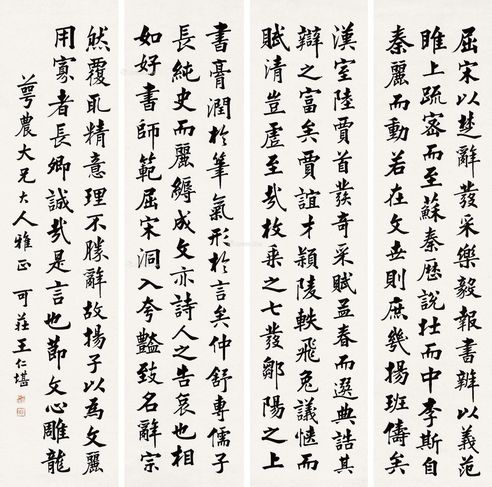 屈宋以楚辭發采樂毅報書辨以義范
雎上疏密而至蘇秦歷說壯而中李斯自
奏麗而動若在文世則庶幾揚班儔矣
漢室陸賈首發奇采賦孟春而選典誥其
辯之富矣賈誼才穎陵軼飛兔議愜而
賦清豈虛至哉枚乘之七發鄒陽之上
書膏潤於筆氣形於言矣仲舒專儒子
長純史而麗縟成文亦詩人之告哀也相
如好書師範屈宋洞入夸豔致名辭宗
然覆取精意理不勝辭故揚子以為文麗
用寡者長卿誠哉是言也節文心雕龍
萼農大兄大人雅正 可莊王仁堪